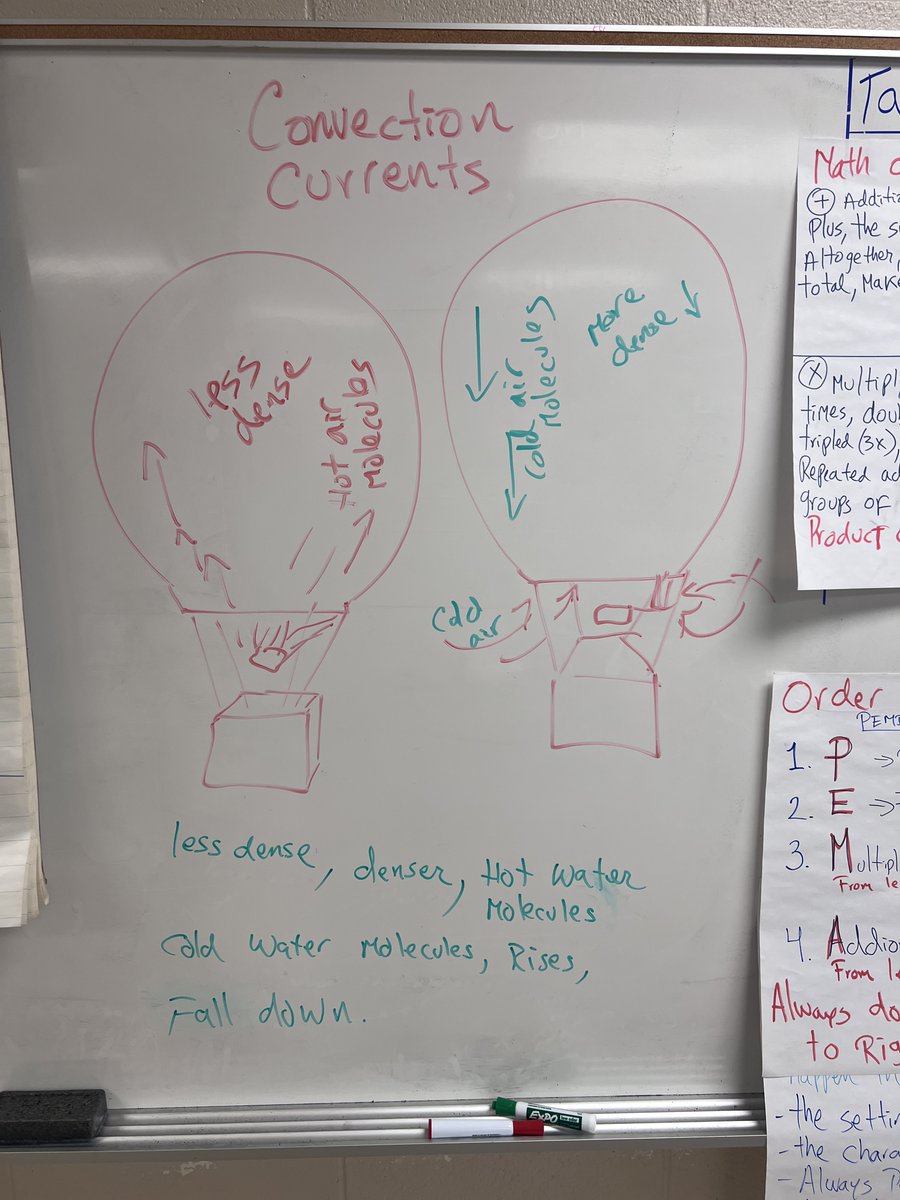 Convection
Currents
less
dense
Hot air
Molecules
Cold air
Molecules
More
dense
Cold
air
less dense, denser, Hot Water
Molecules
Cold Water Molecules, Rises,
Fall down.
EXPO
Math
+ Additi
Plus, the
Altogether,
total, Make
x Multipl
times, dou
tripled (3x),
Repeated ad
groups of
Product
Order
PEM
1. P →
2. E →
3. Multipl
From le
4. Addio
From l
Always do
to Rig
- the settin
- the chara
- Always